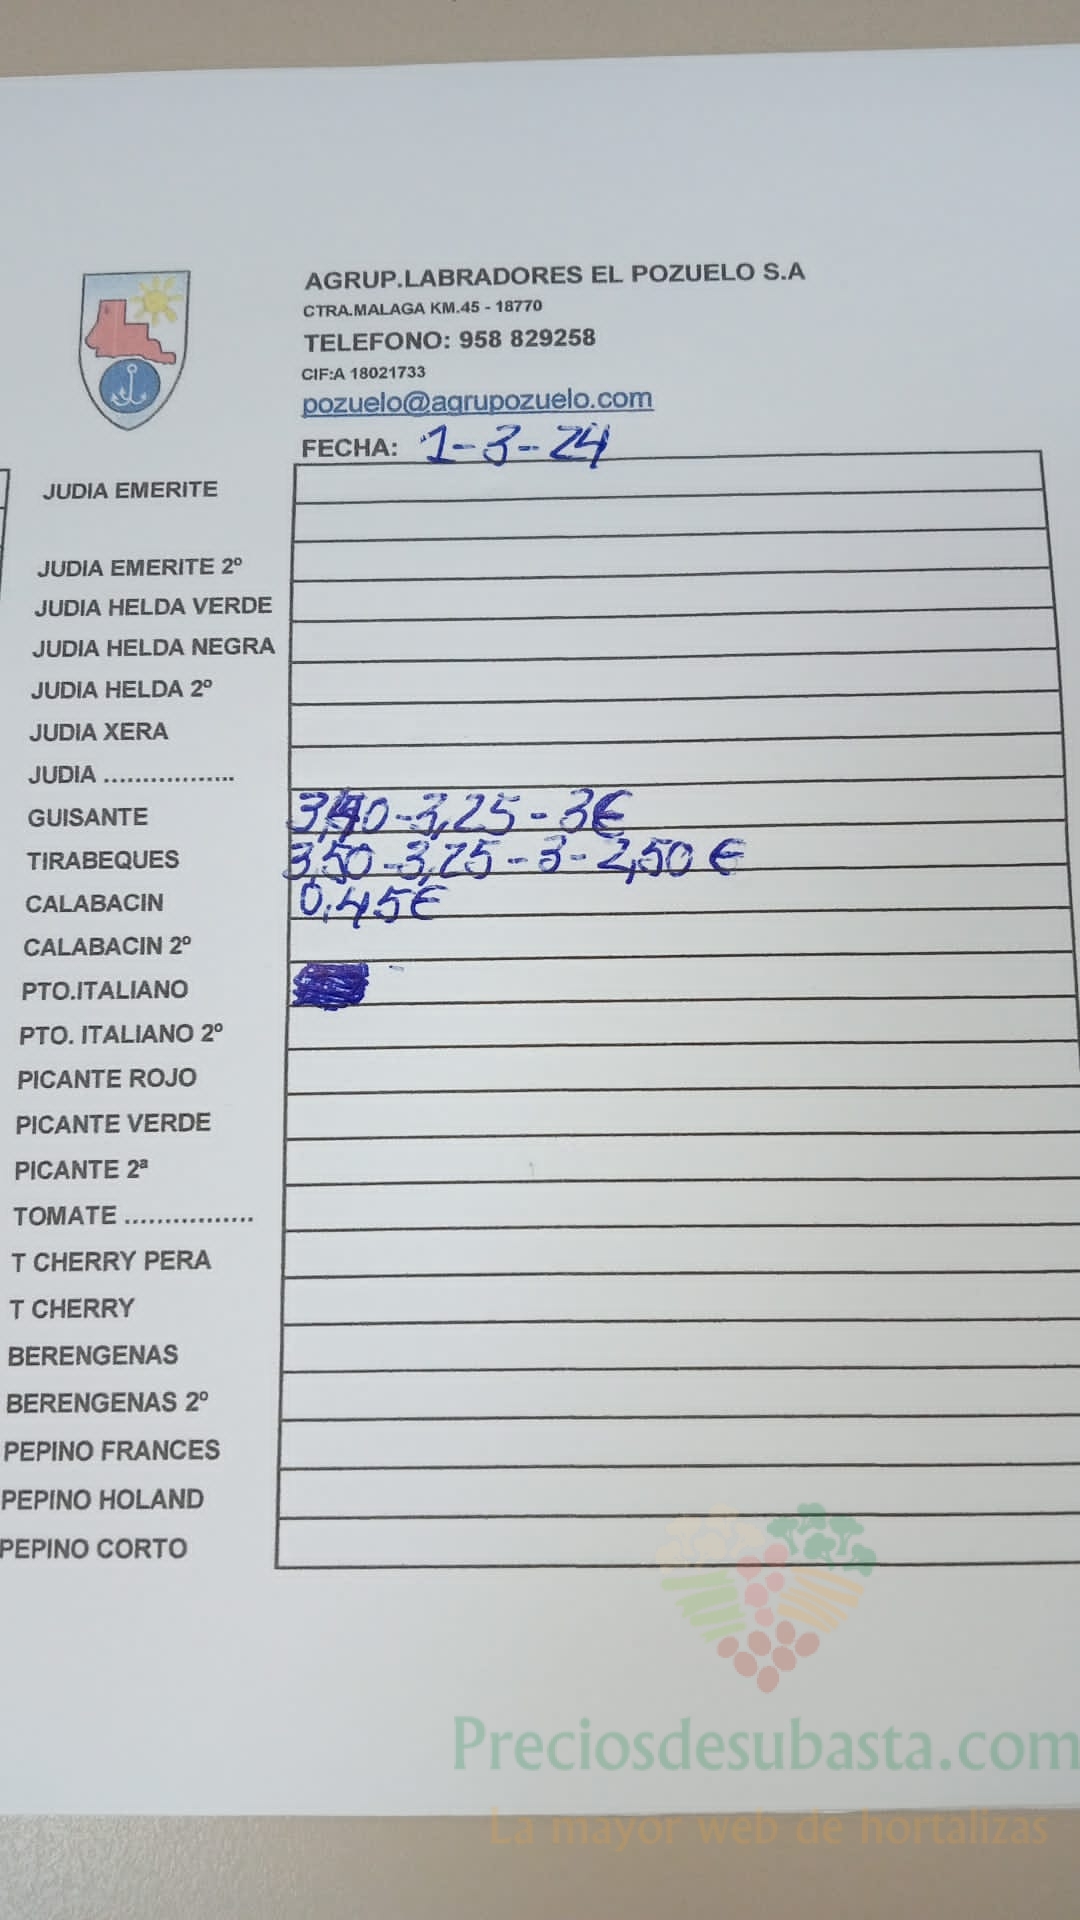 AGRUP.LABRADORES EL POZUELO S.A
CTRA.MALAGA KM.45 - 18770
TELEFONO: 958 829258
CIF:A 18021733
pozuelo@agrupozuelo.com
FECHA: 1-3-24
JUDIA EMERITE
JUDIA EMERITE 2º
JUDIA HELDA VERDE
JUDIA HELDA NEGRA
JUDIA HELDA 2º
JUDIA XERA
JUDIA .................
GUISANTE 3,25 - 3€
TIRABEQUES 3,50 - 3,25 - 3 - 2,50 €
CALABACIN 0,45€
CALABACIN 2º
PTO.ITALIANO
PTO. ITALIANO 2º
PICANTE ROJO
PICANTE VERDE
PICANTE 2ª
TOMATE ................
T CHERRY PERA
T CHERRY
BERENGENAS
BERENGENAS 2º
PEPINO FRANCES
PEPINO HOLAND
PEPINO CORTO
Preciosdesubasta.com
La mayor web de hortalizas